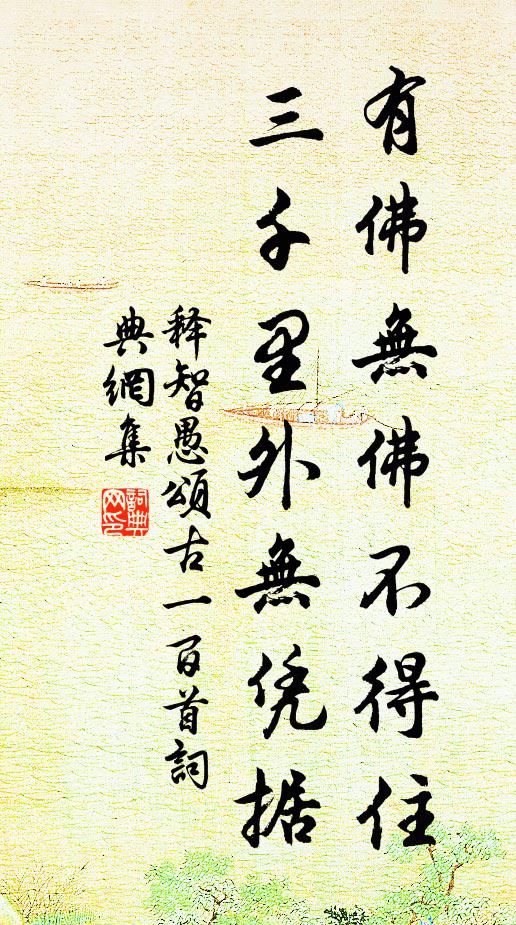 有佛無佛不得住
三千里外無凭据
释智愚頌古一百首詞
典網集
詞典网印